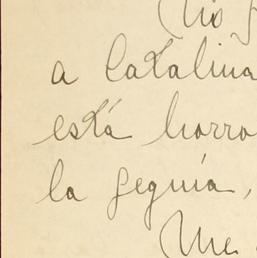 No
a Catalina
está horro
la seguía,
Me